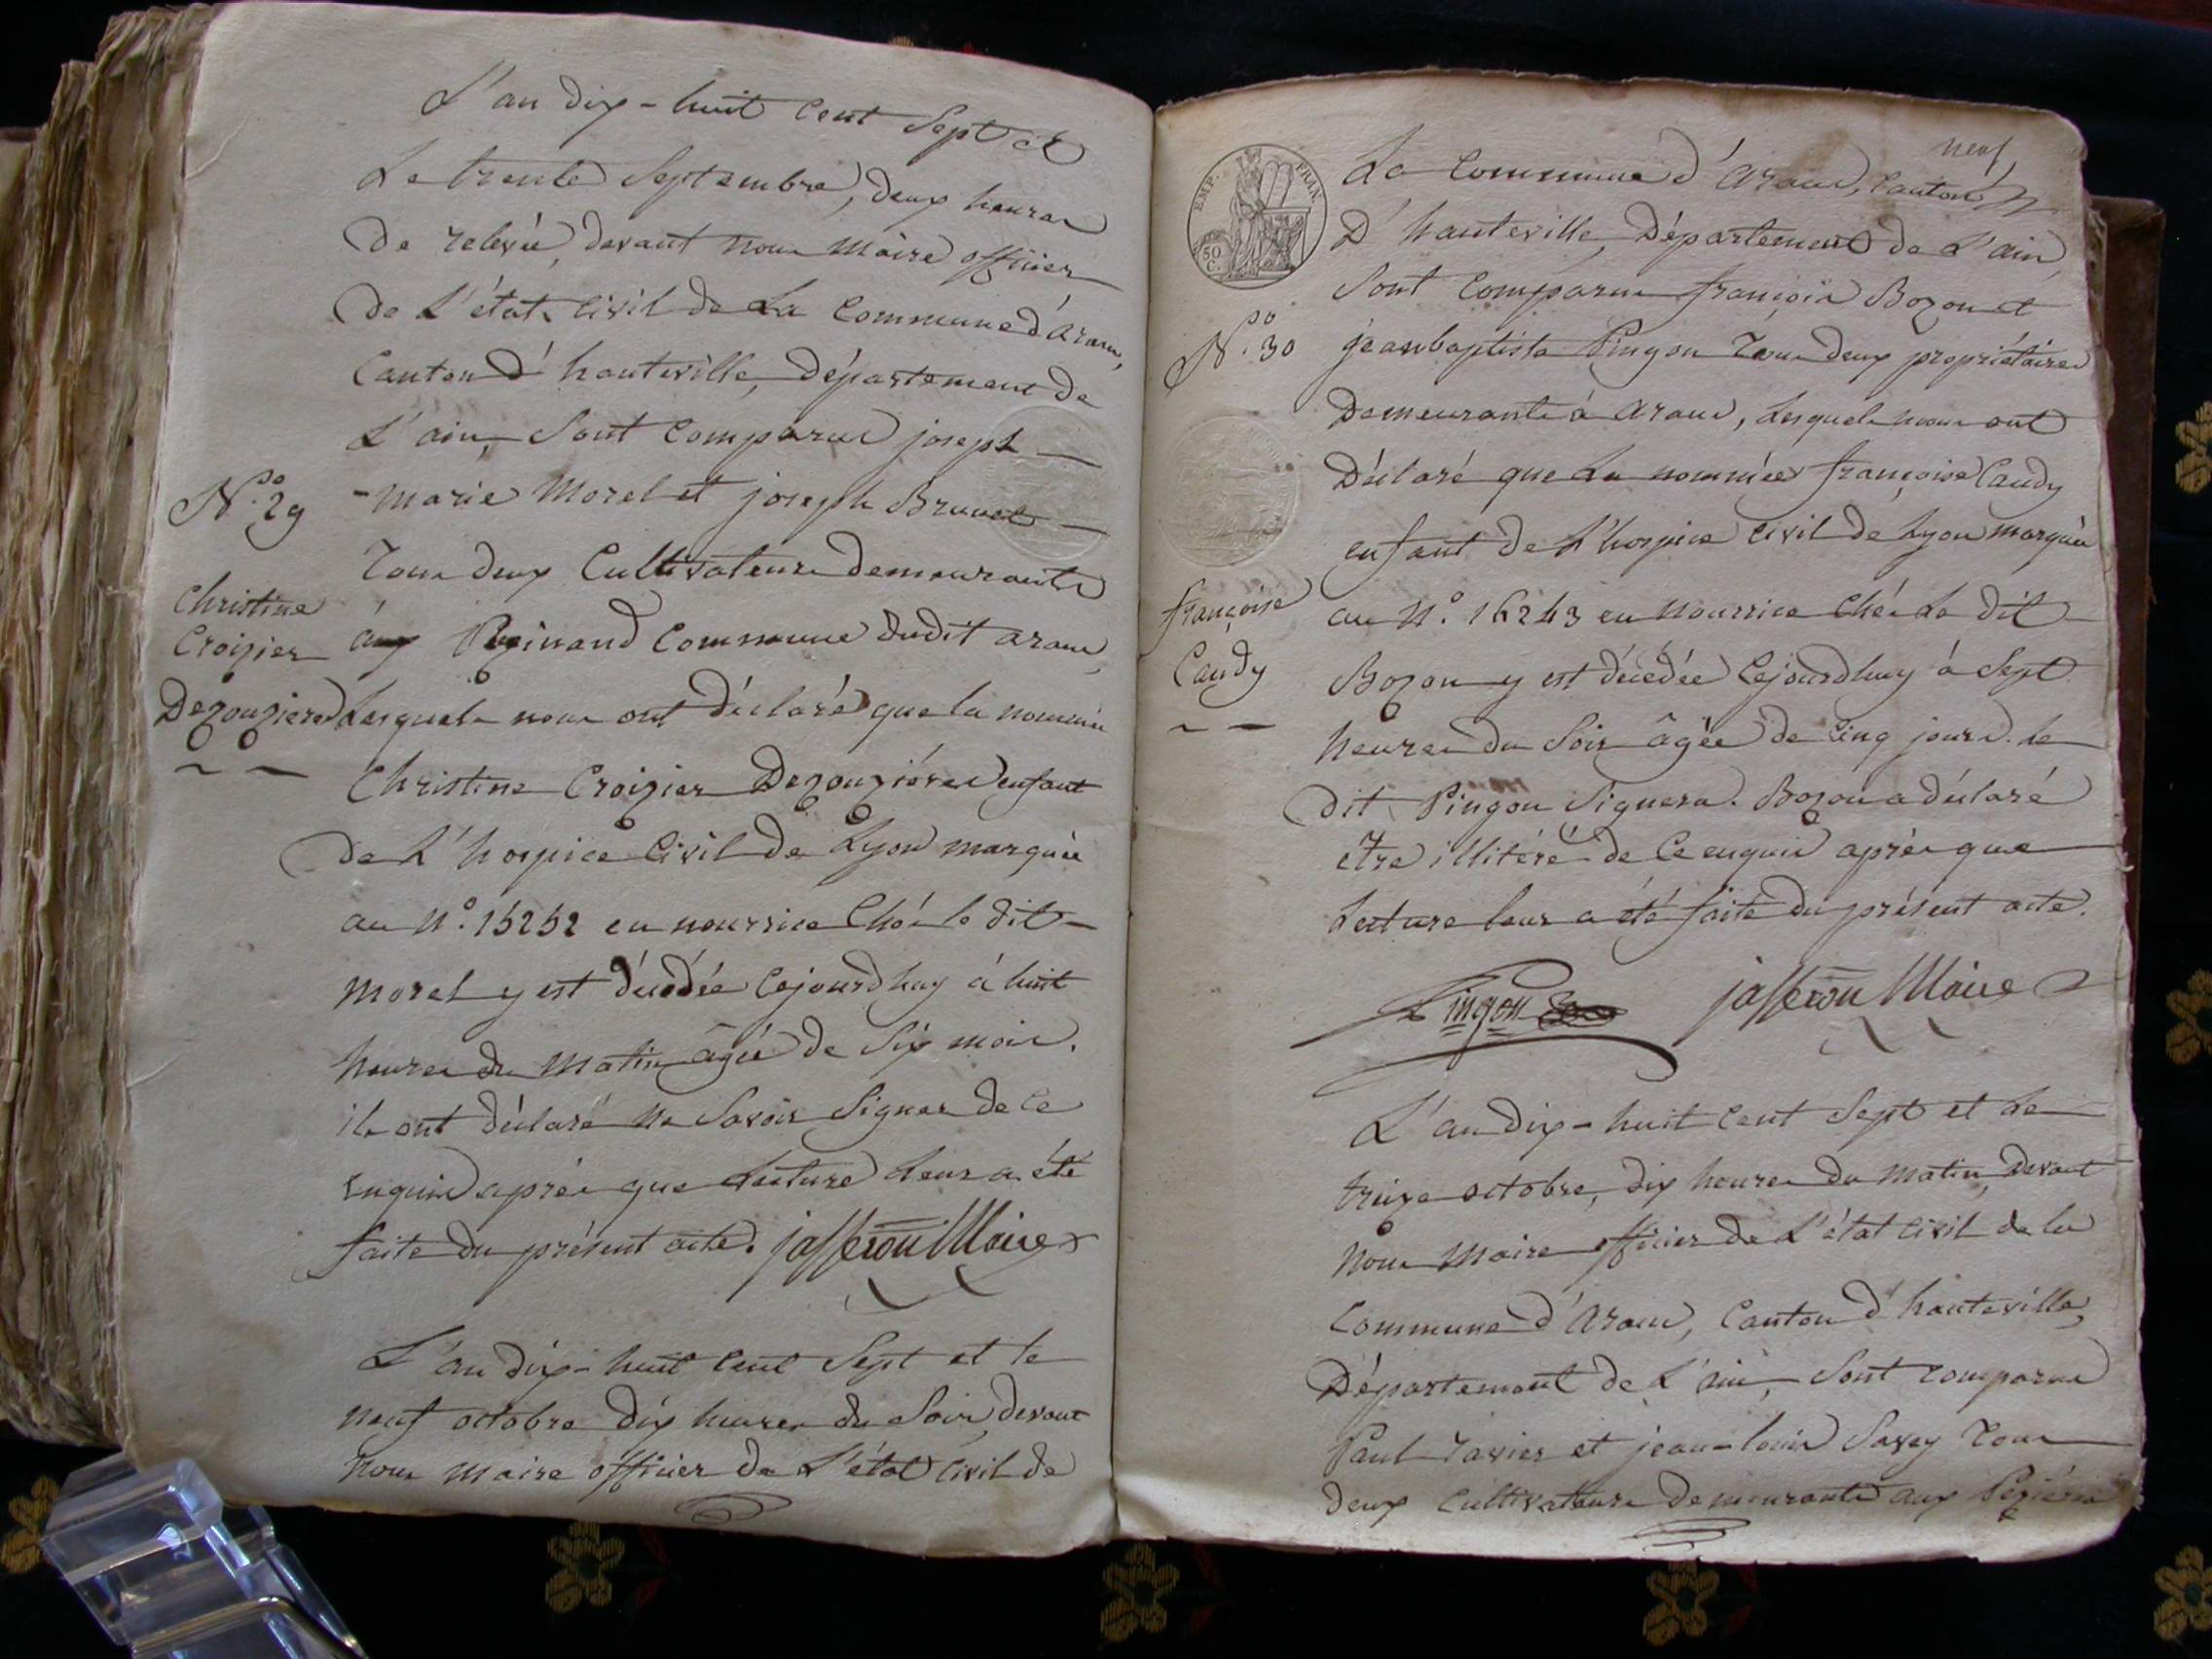 L'an dix-huit cent sept et
Le trente Septembre, deux heures
de relevée, devant nous Maire officier
de L'état civil de La Commune d'aranc,
Canton d'hauteville, département de
L'ain, Sont comparus joseph
N.o 29
-marie Morel et joseph Brunet
Tous deux Cultivateurs demeurants
Christine
Croizier
Dezouzieres
aux Pezinand Commune dudit aranc,
Lesquels nous ont déclaré que la nommée
Christine Croizier Dezouziéres enfant
de L'hospice Civil de Lyon marquée
au N.o 15252 en nourrice Chés le dit
morel y est décédée Cejourdhuy á huit
heures du Matin âgée de Six mois.
ils ont déclaré ne Savoir Signer de ce
enquis aprés que Lecture Leur a été
faite du présent acte. jafferon Maire
L'an dix-huit cent Sept et le
neuf octobre dix heures du Soir, devant
nous Maire officier de L'état Civil de
neuf
EMP. FRAN.
50 C.
La Commune d'aranc, Canton
D'hauteville, Département de L'ain,
Sont Comparus françois Bozon et
N.o 30
jeanbaptiste Pingon Tous deux propriétaires
Demeurants à aranc, Lesquels nous ont
Déclaré que La nommée françoise Candy
enfant de L'hospice Civil de Lyon marquée
françoise
Candy
au N.o 16243 en Nourrice Chés Le dit
Bozon y est décédée Cejourdhuy á Sept
heures du Soir âgée de Cinq jours. Le
dit Pingon Signera. Bozon a déclaré
être illitéré de Ce enquis aprés que
Lecture leur a été faite du présent acte.
Pingon jafferon Maire
L'an dix-huit Cent Sept et Le
treize octobre, dix heures du Matin, Devant
Nous Maire officier de L'état Civil de la
Commune d'aranc, Canton d'hauteville,
Département de L'ain, Sont comparus
Paul Tavier et jean-louis Savey Tous
deux Cultivateurs Demeurants aux